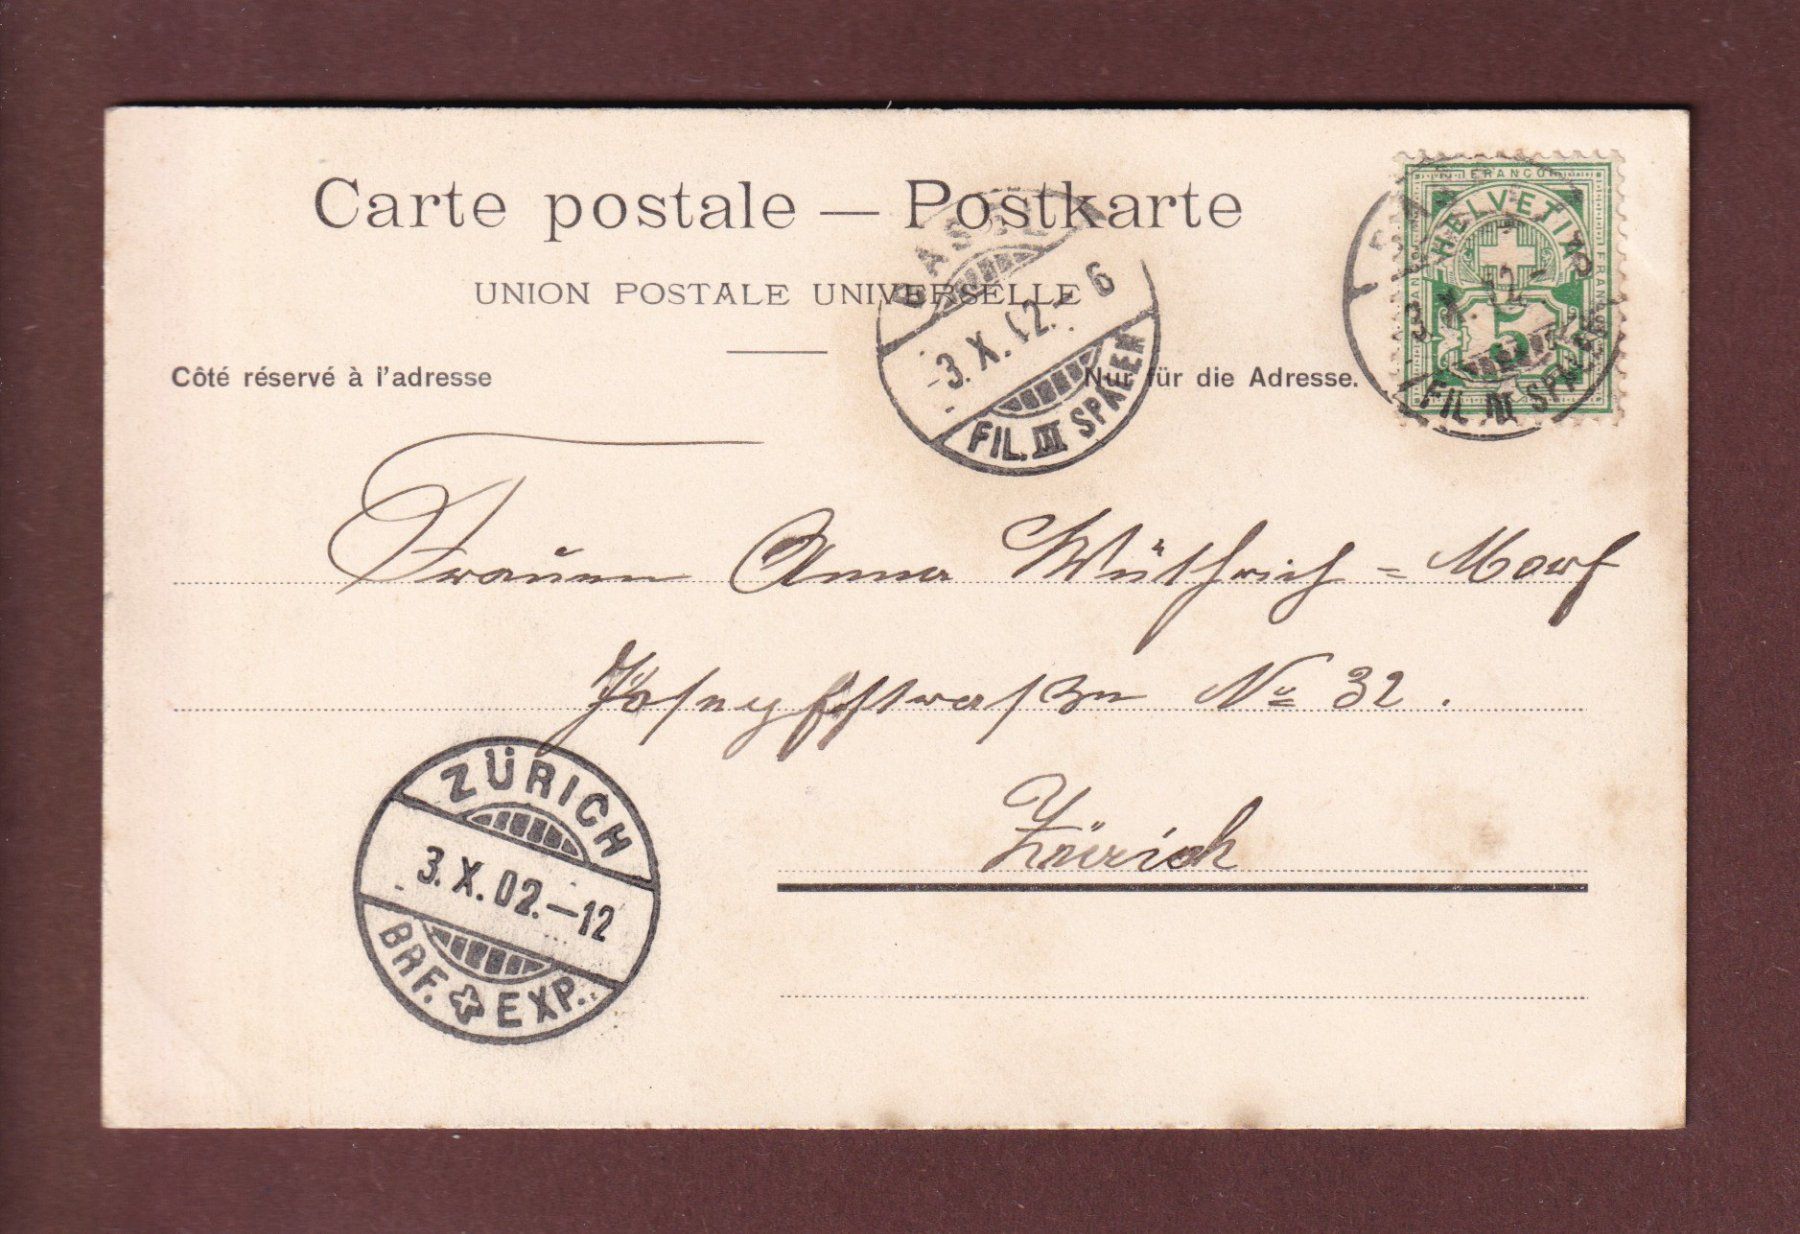 Carte postale — Postkarte
UNION POSTALE UNIVERSELLE
Côté réservé à l'adresse
Nur für die Adresse.
FRANCO
HELVETIA
FRANCO
5
3.X.02.-6
FIL. III SPALEN
BASEL
3.X.02.-6
FIL. III SPALEN
Frauen Anna Wüthrich = Morf
Josephstraße No 32.
Zürich
ZÜRICH
3.X.02.-12
BRF. EXP.